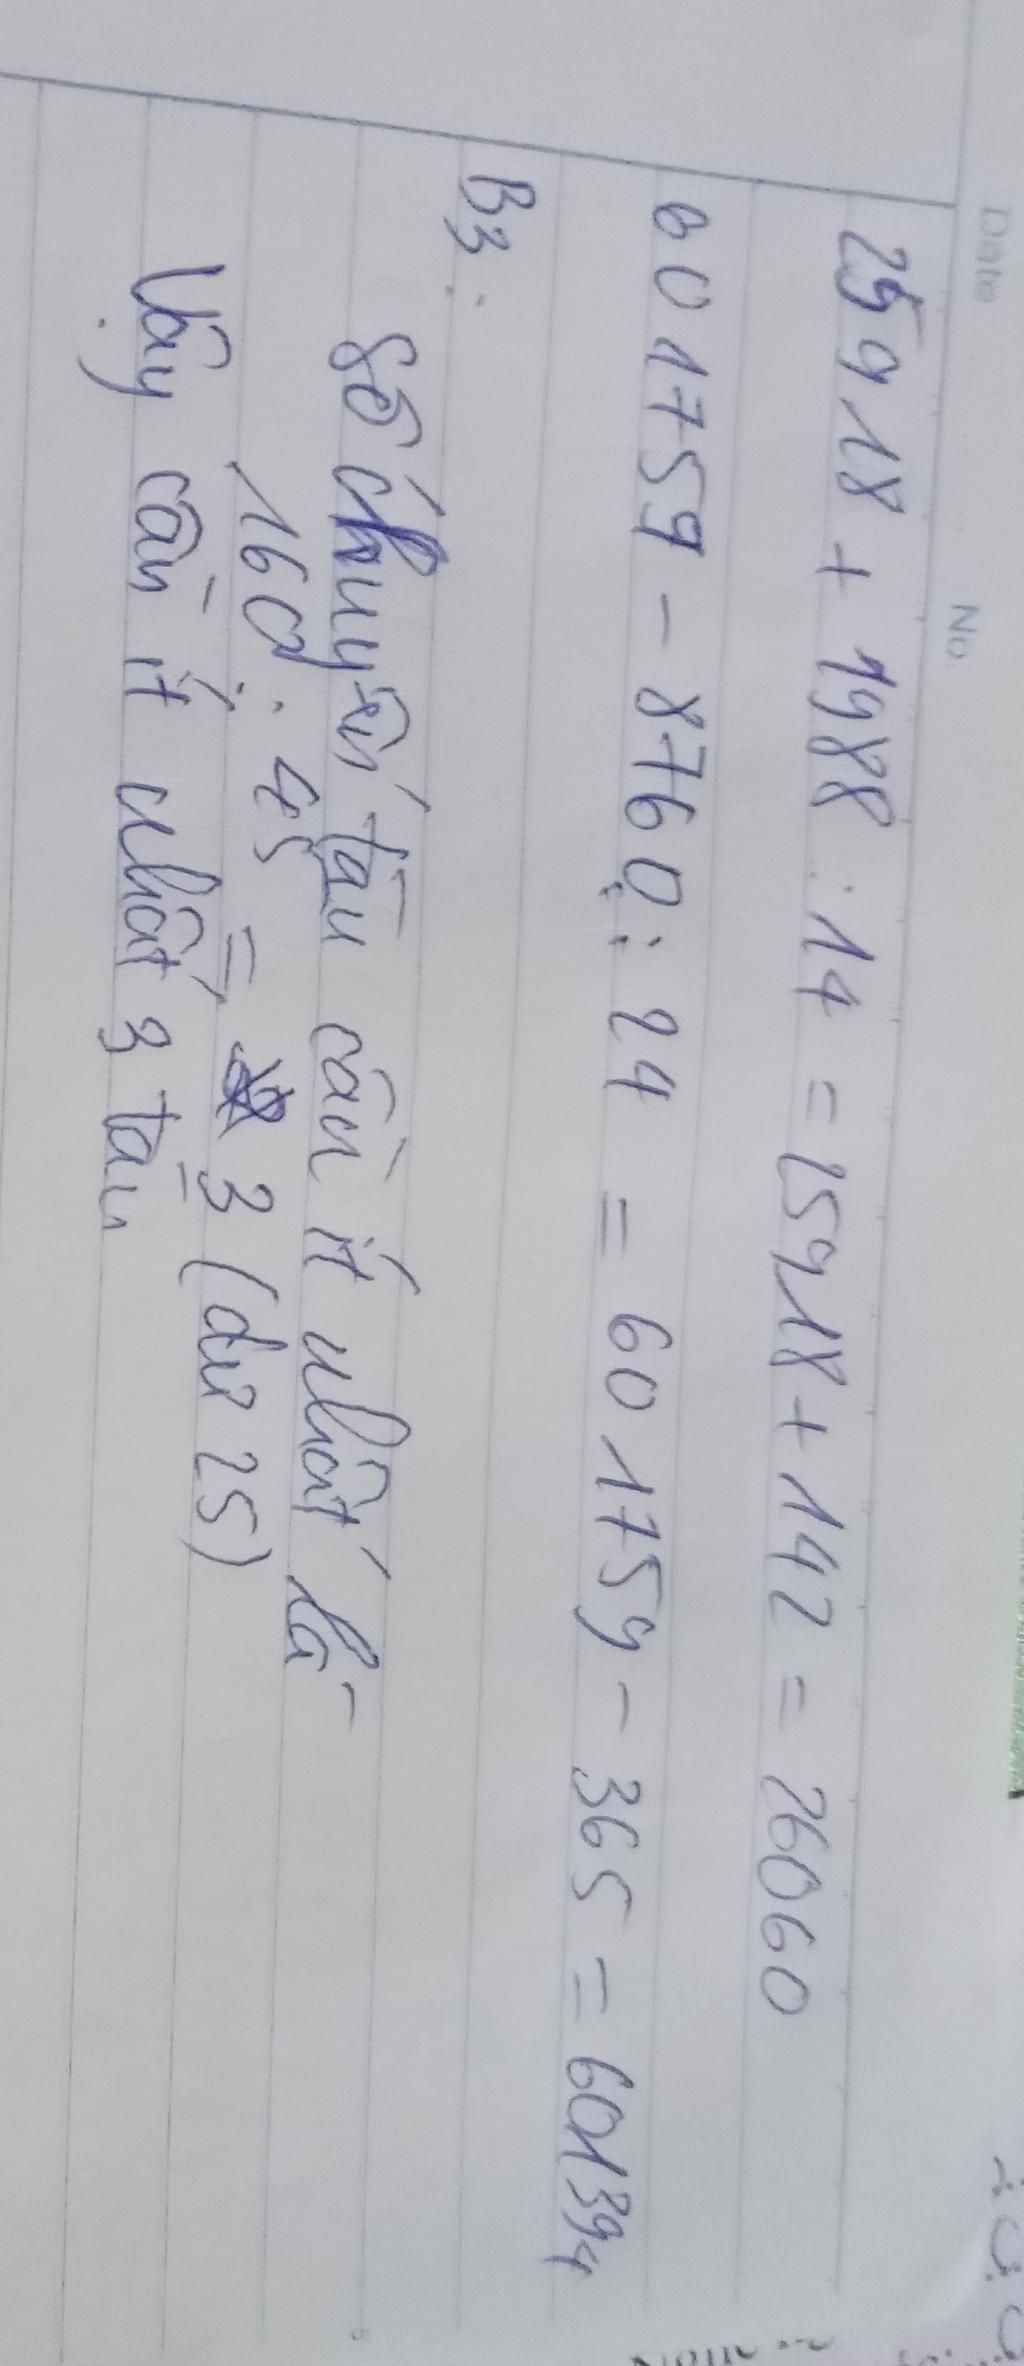 Date
No.
25918 + 1988 : 14 = 25918 + 142 = 26060
601759 - 8760 : 24 = 601759 - 365 = 601394
B3:
Số chuyến tàu cần ít nhất là
160 : 45 = 3 (dư 25)
Vậy cần ít nhất 3 tàu